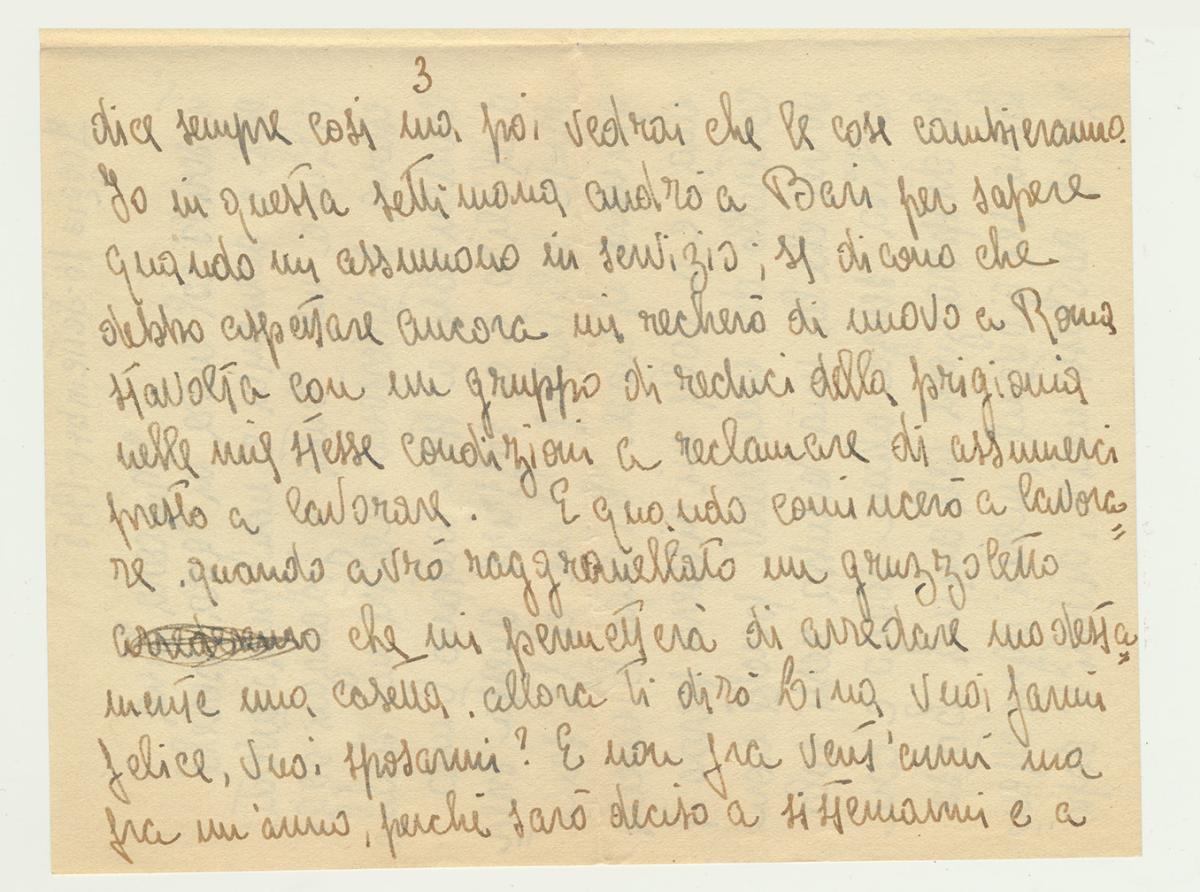 3
dice sempre così ma poi vedrai che le cose cambieranno.
Io in questa settimana andrò a Bari per sapere
quando mi assumono in servizio; se dicono che
debbo aspettare ancora mi recherò di nuovo a Roma
stavolta con un gruppo di reduci della prigionia
nelle mie stesse condizioni a reclamare di assumerci
presto a lavorare. E quando comincerò a lavora=
re, quando avrò raggranellato un gruzzoletto
che mi permetterà di arredare modesta=
mente una casetta, allora ti dirò Lina vuoi farmi
felice, vuoi sposarmi? E non fra vent'anni ma
fra un'anno, perché sarò deciso a sistemarmi e a